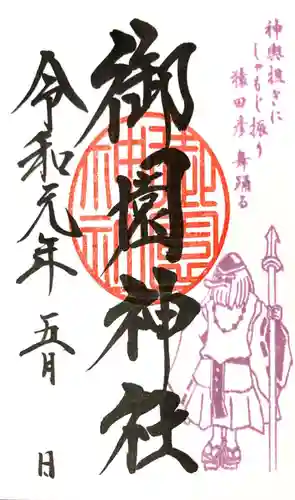 神輿担ぎに
しゃもじ振り
猿田彦舞踊る
御園神社
令和元年 五月 日